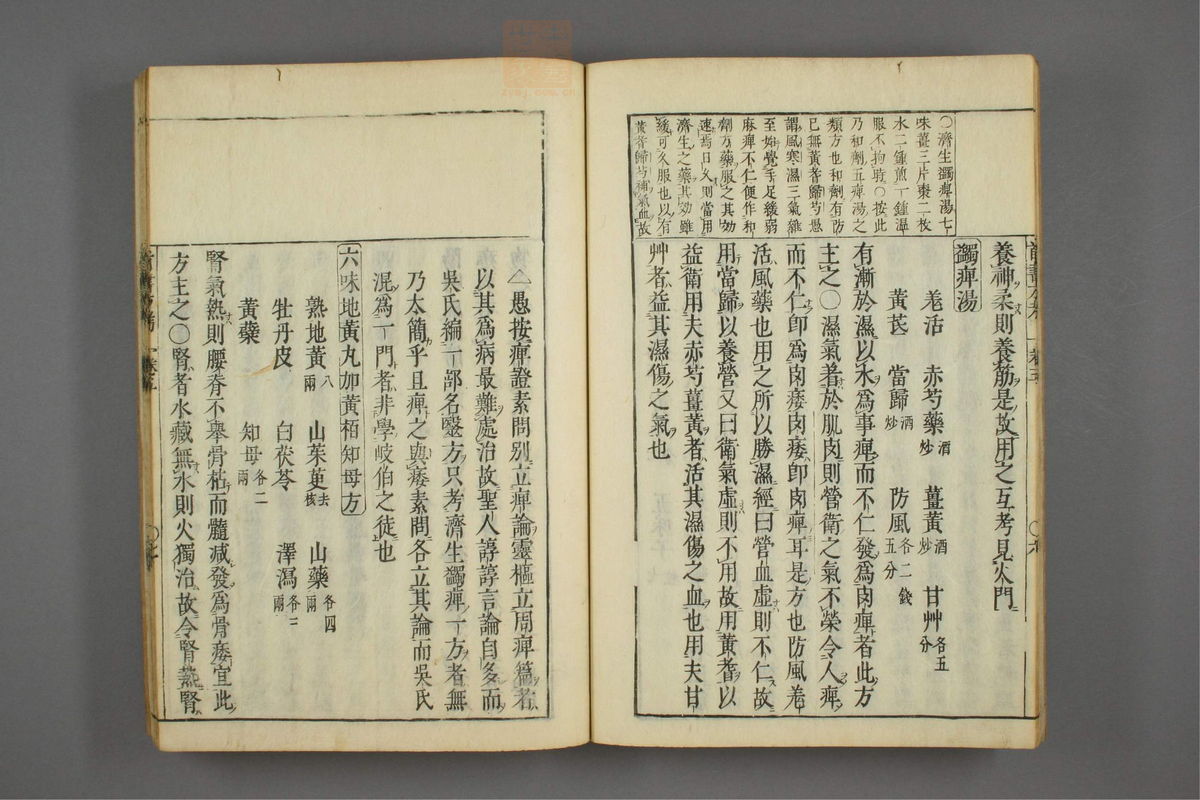 〇濟生蠲痺湯七
味薑三片棗二枚
水二鍾煎一鍾溫
服不拘時〇按此
乃和劑五痺湯之
類方也和劑有防
已無黃耆歸芍愚
謂風寒濕三氣雜
至始覺手足緩弱
麻痺不仁便作和
劑方藥服之其効
速焉日久則當用
濟生之藥其効雖
緩可久服也以有
黃耆歸芍補氣血故
養神柔則養筋是故用之互考見火門
蠲痺湯
羗活 赤芍藥酒炒 薑黃酒炒 甘艸各五分
黃芪 當歸酒炒 防風各二錢五分
有漸於濕以水爲事痺而不仁發爲肉痺者此方
主之〇濕氣著於肌肉則營衛之氣不榮令人痺
而不仁卽爲肉痿肉痿卽肉痺耳是方也防風羗
活風藥也用之所以勝濕經曰營血虛則不仁故
用當歸以養營又曰衛氣虛則不用故用黃耆以
益衛用夫赤芍薑黃者活其濕傷之血也用夫甘
艸者益其濕傷之氣也
△愚按痺證素問別立痺論靈樞立周痺篇者
以其爲病最難處治故聖人諄諄言論自多而
吳氏編一部名醫方只考濟生蠲痺一方者無
乃太簡乎且痺之與痿素問各立其論而吳氏
混爲一門者非學岐伯之徒也
六味地黃丸加黃栢知母方
熟地黃八兩 山茱萸去核 山藥各四兩
牡丹皮 白茯苓 澤瀉各三兩
黃蘗 知母各二兩
腎氣熱則腰脊不舉骨枯而髓減發爲骨痿宜此
方主之〇腎者水藏無水則火獨治故令腎熱腎